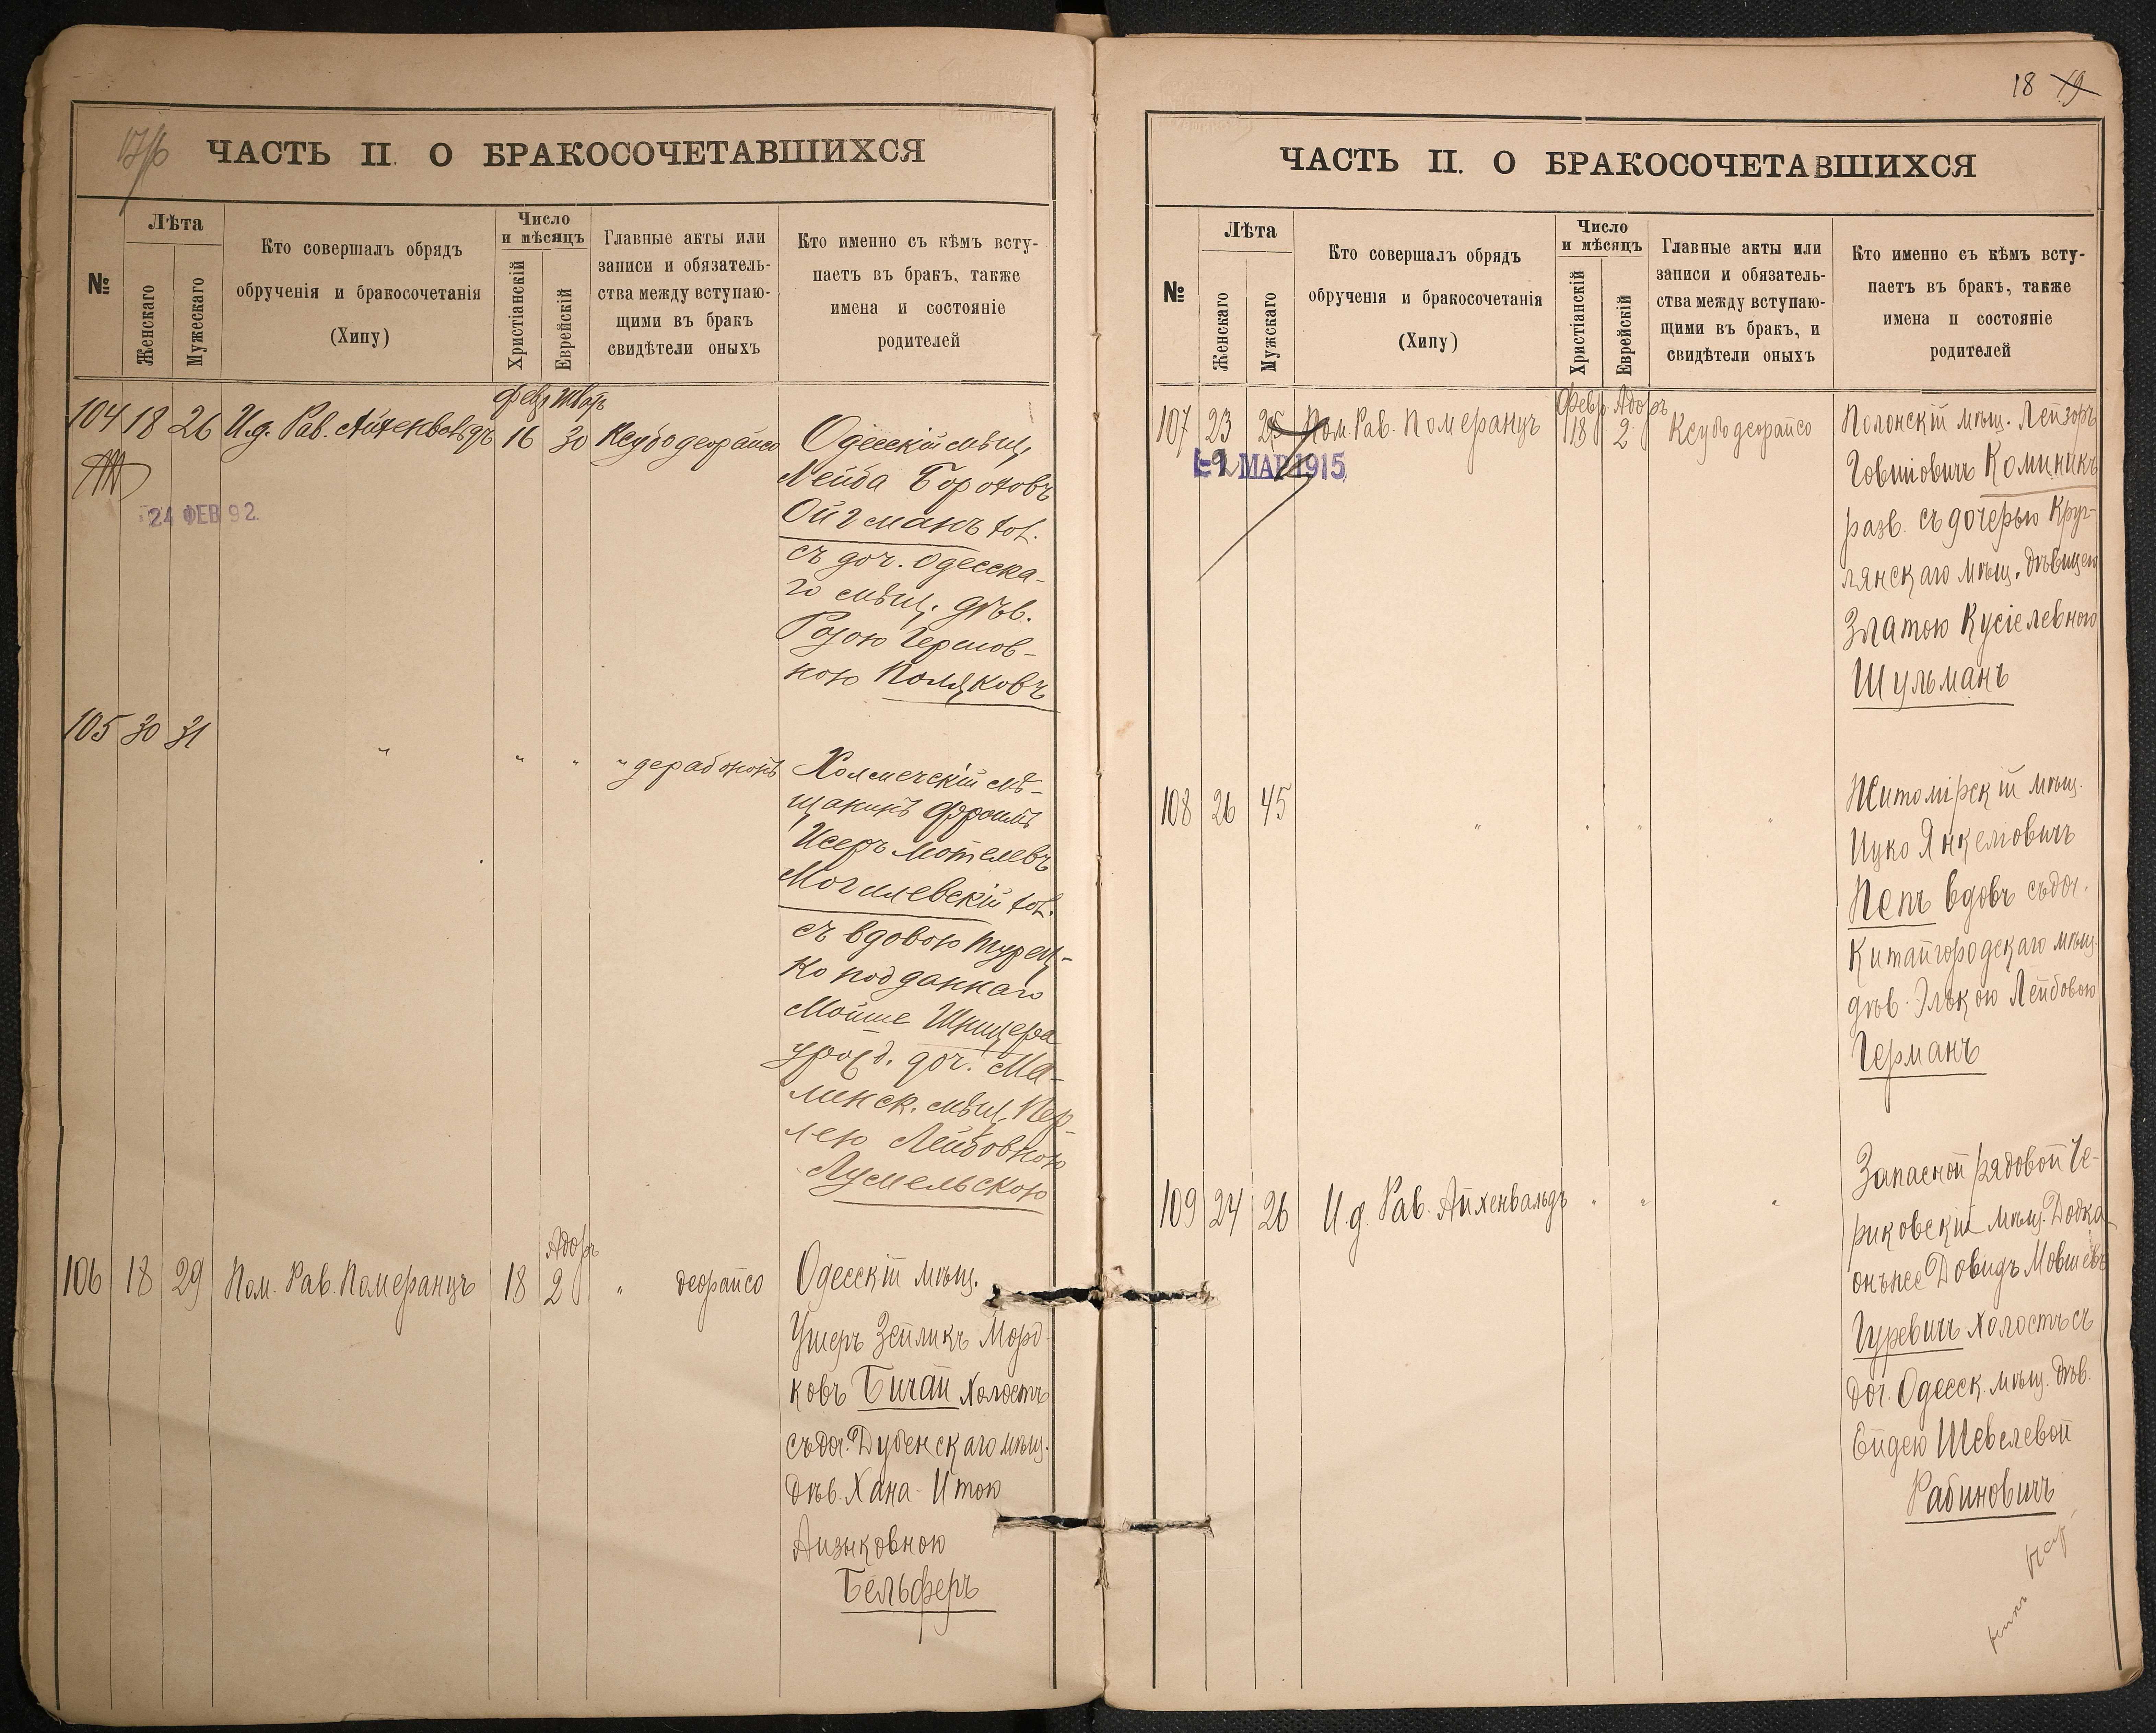 ЧАСТЬ II. О БРАКОСОЧЕТАВШИХСЯ
№
Лѣта
Женскаго
Мужескаго
Кто совершалъ обрядъ
обрученія и бракосочетанія
(Хипу)
Число
и мѣсяцъ
Христіанскій
Еврейскій
Главные акты или
записи и обязатель-
ства между вступаю-
щими въ бракъ
свидѣтели оныхъ
Кто именно съ кѣмъ всту-
паетъ въ бракъ, также
имена и состояніе
родителей
Февр. Шватъ
104 18 26 И.д. Рав. Айхенвальдъ 16 30 Ксубо деорайсо
24 ФЕВ 92
Одесскій мѣщ.
Лейба Бороховъ
Ойгманъ хол.
съ доч. Одесска-
го мѣщ. дѣв.
Розою Гершов-
ною Поляковъ
105 30 31 " " " " дерабононъ
Холмечскій мѣ-
щанинъ Фроимъ
Исеръ Мотелевъ
Могилевскій хол.
съ вдовою турец-
ко подданнаго
Мойше Шницера
урожд. доч. Ма-
линск. мѣщ. Пер-
лею Лейбовною
Лусмельскою
Адоръ
106 18 29 Пом. Рав. Померанцъ 18 2 " деорайсо
Одесскій мѣщ.
Ушеръ Зейликъ Морд-
ковъ Бичай холостъ
съ доч. Дубенскаго мѣщ.
дѣв. Хана-Итою
Айзыковною
Бельферъ
18 19
ЧАСТЬ II. О БРАКОСОЧЕТАВШИХСЯ
№
Лѣта
Женскаго
Мужскаго
Кто совершалъ обрядъ
обрученія и бракосочетанія
(Хипу)
Число
и мѣсяцъ
Христіанскій
Еврейскій
Главные акты или
записи и обязатель-
ства между вступаю-
щими въ бракъ, и
свидѣтели оныхъ
Кто именно съ кѣмъ всту-
паетъ въ бракъ, также
имена и состояніе
родителей
Февр. Адоръ
107 23 25 Пом. Рав. Померанцъ 18 2 Ксубо деорайсо
МАР 1915
Полонскій мѣщ. Лейзоръ
Говшіовичъ Коминикъ
разв. съ дочерью Круг-
лянскаго мѣщ. дѣвицею
Златою Кусіелевною
Шульманъ
108 26 45 " " " "
Житомірскій мѣщ.
Ицко Янкеліовичъ
Пепъ вдовъ съ доч.
Китайгородскаго мѣщ.
дѣв. Элькою Лейбовою
Германъ
109 24 26 И.д. Рав. Айхенвальдъ " " "
Запасной рядовой Че-
риковскій мѣщ.
онъ же Довидъ Мовшевъ
Гуревичъ холостъ съ
доч. Одесск. мѣщ. дѣв.
Ейдею Шевелевой
Рабиновичъ